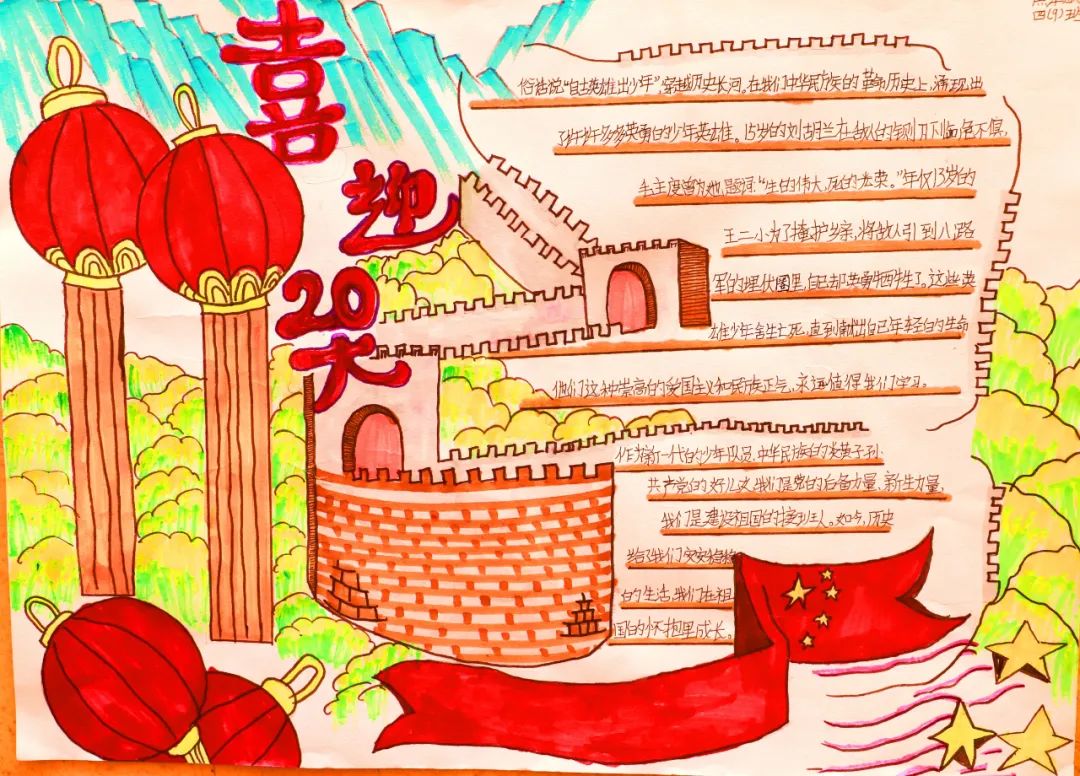 喜
迎
20
大
四(9)班
俗话说“自古英雄出少年”,穿越历史长河。在我们中华民族的革命历史上,涌现出
了许许多多英勇的少年英雄。15岁的刘胡兰在敌人的铡刀下面色不惧,
毛主席曾为她题词:“生的伟大,死的光荣。”年仅13岁的
王二小为了掩护乡亲,将敌人引到八路
军的埋伏圈里,自己却英勇牺牲了。这些英
雄少年舍生忘死,直到献出自己年轻的生命
他们这种崇高的爱国主义和民族正气,永远值得我们学习。
作为新一代的少年队员,中华民族的炎黄子孙
共产党的好儿女,我们是党的后备力量、新生力量,
我们是建设祖国的接班人。如今,历史
给了我们安安稳稳
的生活,我们在祖
国的怀抱里成长。